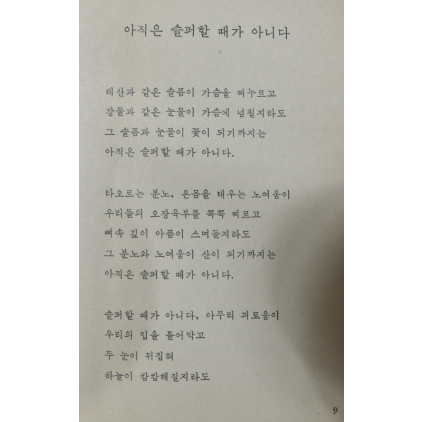 아직은 슬퍼할 때가 아니다
태산과 같은 슬픔이 가슴을 찌누르고
강물과 같은 눈물이 가슴에 넘칠지라도
그 슬픔과 눈물이 꽃이 되기까지는
아직은 슬퍼할 때가 아니다.
타오르는 분노, 온몸을 태우는 노여움이
우리들의 오장육부를 콕콕 찌르고
뼈속 깊이 아픔이 스며들지라도
그 분노와 노여움이 산이 되기까지는
아직은 슬퍼할 때가 아니다.
슬퍼할 때가 아니다, 아무리 괴로움이
우리의 입을 틀어막고
두 눈이 뒤집혀
하늘이 캄캄해질지라도
9